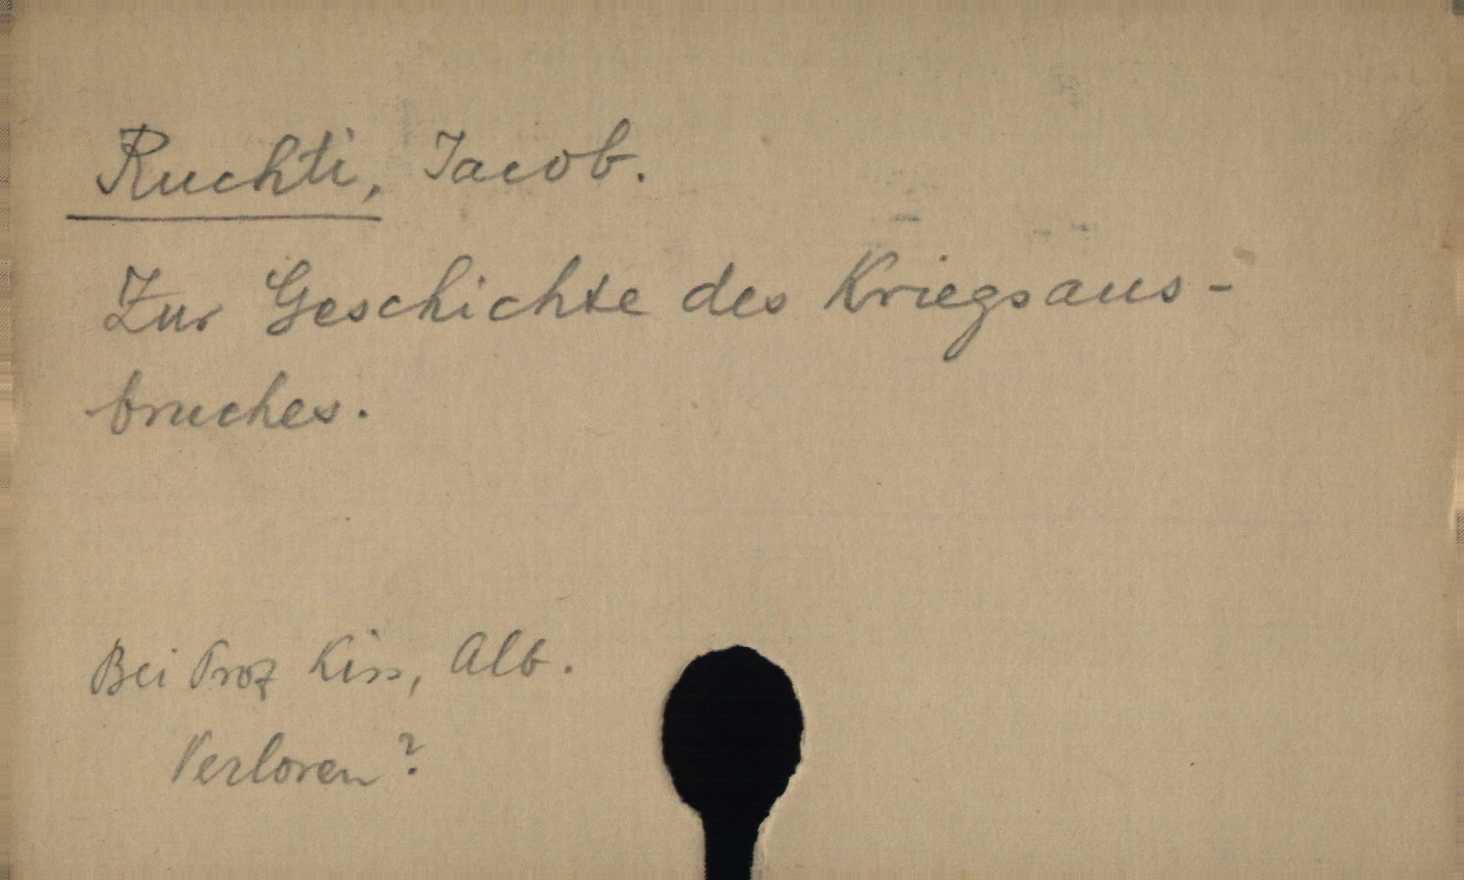 Ruchti, Jacob.
Zur Geschichte des Kriegsaus-
bruches.
Bei Proz Kiss, Alb.
Verloren?